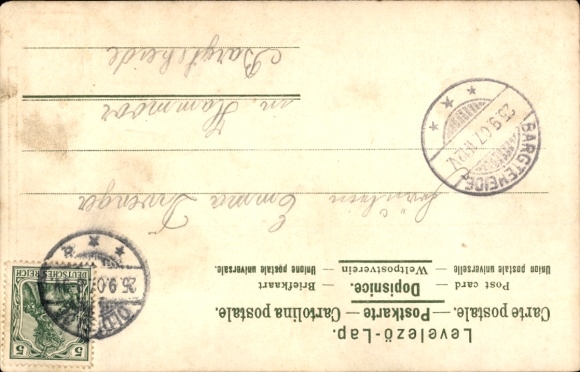 Levelező-Lap.
Carte postale. — Postkarte — Cartolina postale.
Post card — Dopisnice. — Briefkaart
Union postale universelle — Weltpostverein — Unione postale universale.
DEUTSCHES REICH
5
5
25.9.07
Fräulein Emma
in Hammoor
Bargteheide
BARGTEHEIDE
25.9.07.